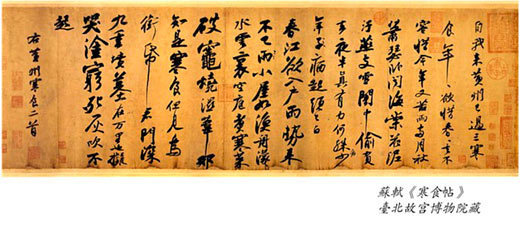 自我來黃州已過三寒
食年〻欲惜春〻去不
容惜今年又苦雨兩月秋
蕭瑟臥聞海棠花泥
汙燕支雪闇中偷負
去夜半真有力何殊少
年子病起頭已白
春江欲入戶雨勢來
不已雨小屋如漁舟濛〻
水雲裏空庖煮寒菜
破竈燒濕葦那
知是寒食但見烏
銜帋君門深
九重墳墓在万里也擬
哭塗窮死灰吹不
起
右黃州寒食二首
蘇軾《寒食帖》
臺北故宮博物院藏